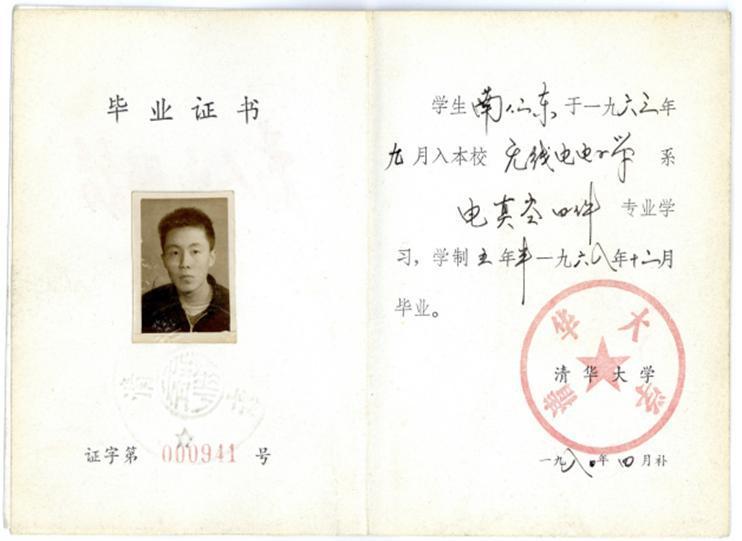 毕业证书
证字第 000941 号
学生 南仙东 于一九六三年
九月入本校 无线电电子学 系
电真空四件 专业学
习，学制五年半一九六八年十二月
毕业。
清华大学
清华大学
一九八〇年四月补